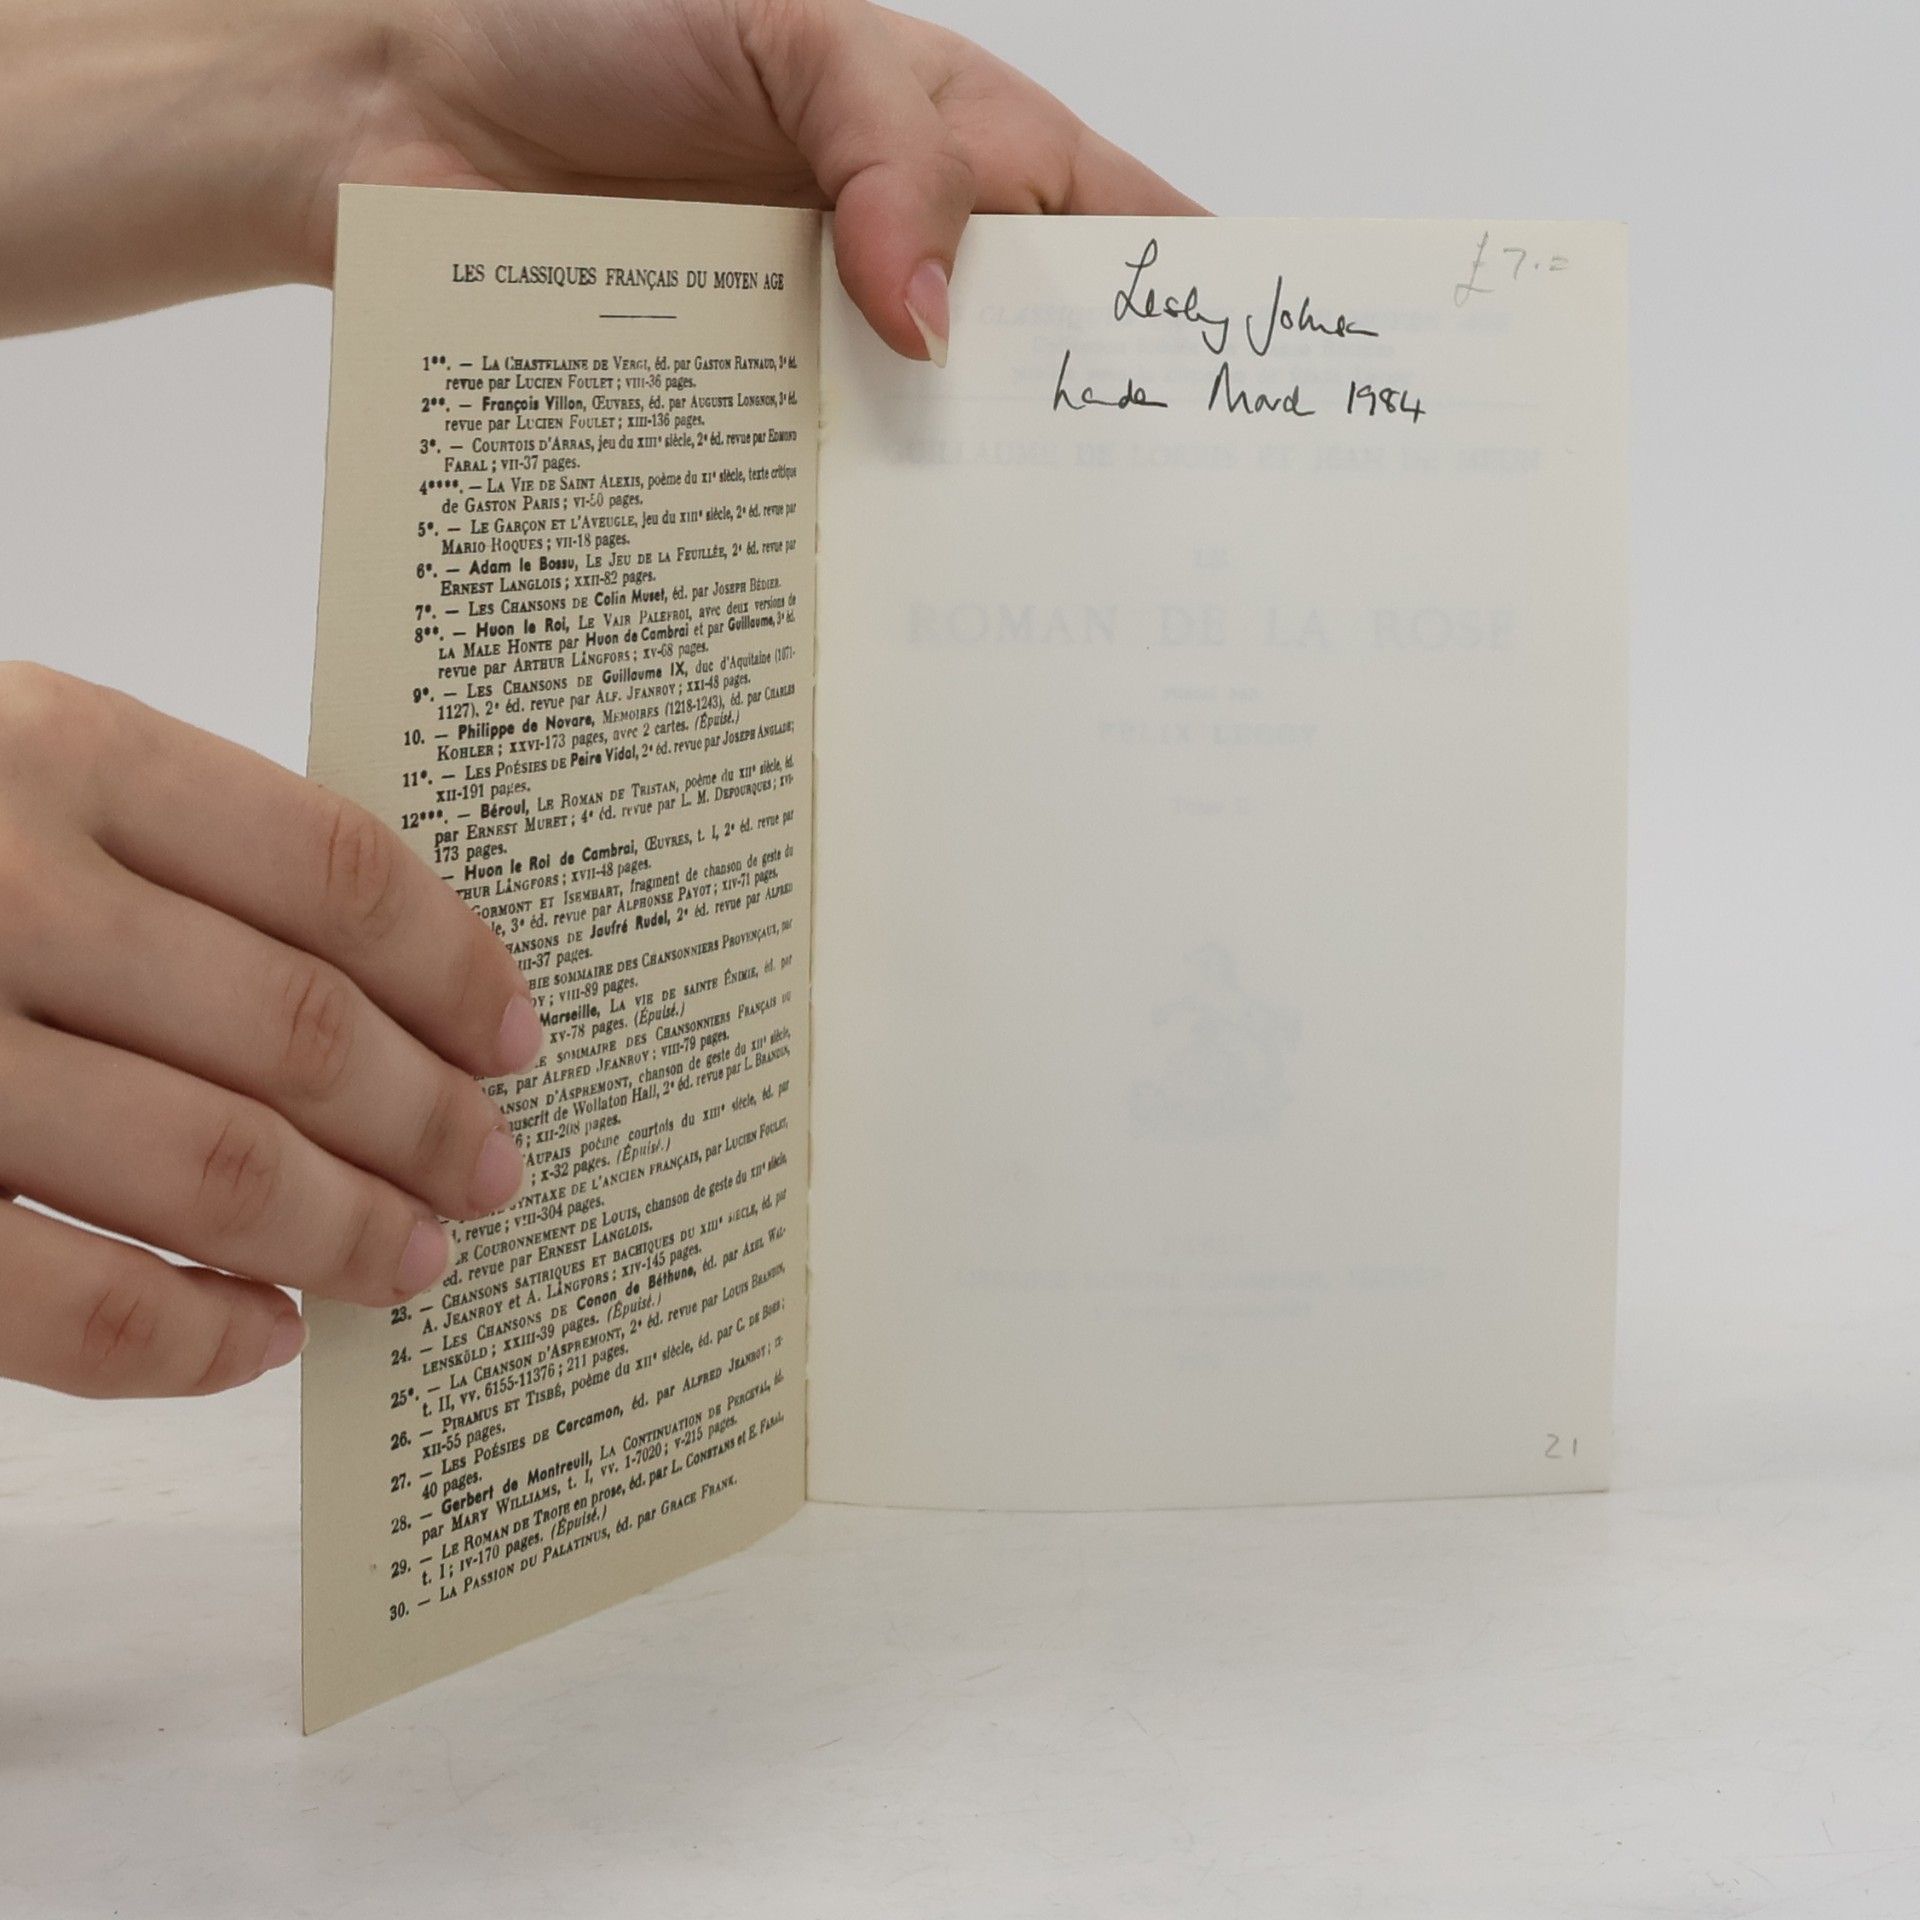 LES CLASSIQUES FRANÇAIS DU MOYEN AGE
1**. — LA CHASTELAINE DE VERGI, éd. par GASTON RAYNAUD, 3e éd.
revue par LUCIEN FOULET ; VIII-36 pages.
2**. — François Villon, ŒUVRES, éd. par AUGUSTE LONGNON, 3e éd.
revue par LUCIEN FOULET ; XIII-136 pages.
3*. — COURTOIS D'ARRAS, jeu du XIIIe siècle, 2e éd. revue par EDMOND
FARAL ; VII-37 pages.
4****. — LA VIE DE SAINT ALEXIS, poème du XIe siècle, texte critique
de GASTON PARIS ; VI-50 pages.
5*. — LE GARÇON ET L'AVEUGLE, jeu du XIIIe siècle, 2e éd. revue par
MARIO ROQUES ; VII-18 pages.
6*. — Adam le Bossu, LE JEU DE LA FEUILLÉE, 2e éd. revue par
ERNEST LANGLOIS ; XXII-82 pages.
7*. — LES CHANSONS DE Colin Muset, éd. par JOSEPH BÉDIER.
8**. — Huon le Roi, LE VAIR PALEFROI, avec deux versions de
LA MALE HONTE par Huon de Cambrai et par Guillaume, 3e éd.
revue par ARTHUR LÅNGFORS ; XV-68 pages.
9*. — LES CHANSONS DE Guillaume IX, duc d'Aquitaine (1071-
1127), 2e éd. revue par ALF. JEANROY ; XXI-48 pages.
10. — Philippe de Novare, MEMOIRES (1218-1243), éd. par CHARLES
KOHLER ; XXVI-173 pages, avec 2 cartes. (Épuisé.)
11*. — LES POÉSIES DE Peire Vidal, 2e éd. revue par JOSEPH ANGLADE ;
XII-191 pages.
12***. — Béroul, LE ROMAN DE TRISTAN, poème du XIIe siècle, éd.
par ERNEST MURET ; 4e éd. revue par L. M. DEFOURQUES ; XVI-
173 pages.
— Huon le Roi de Cambrai, ŒUVRES, t. I, 2e éd. revue par
THUR LÅNGFORS ; XVII-48 pages.
GORMONT ET ISEMBART, fragment de chanson de geste du
le, 3e éd. revue par ALPHONSE PAYOT ; XIV-71 pages.
HANSONS DE Jaufré Rudel, 2e éd. revue par ALFRED
III-37 pages.
HIE SOMMAIRE DES CHANSONNIERS PROVENÇAUX, par
OY ; VIII-89 pages.
Marseille, LA VIE DE SAINTE ÉNIMIE, éd. par
XV-78 pages. (Épuisé.)
E SOMMAIRE DES CHANSONNIERS FRANÇAIS DU
GE, par ALFRED JEANROY ; VIII-79 pages.
ANSON D'ASPREMONT, chanson de geste du XIIe siècle,
nuscrit de Wollaton Hall, 2e éd. revue par L. BRANDIN,
6 ; XII-208 pages.
'AUPAIS poème courtois du XIIIe siècle, éd. par
; X-32 pages. (Épuisé.)
SYNTAXE DE L'ANCIEN FRANÇAIS, par LUCIEN FOULET,
d. revue ; VIII-304 pages.
LE COURONNEMENT DE LOUIS, chanson de geste du XIIe siècle,
éd. revue par ERNEST LANGLOIS.
23. — CHANSONS SATIRIQUES ET BACHIQUES DU XIIIe SIECLE, éd. par
A. JEANROY et A. LÅNGFORS ; XIV-145 pages.
24. — LES CHANSONS DE Conon de Béthune, éd. par AXEL WAL-
LENSKÖLD ; XXIII-39 pages. (Épuisé.)
25*. — LA CHANSON D'ASPREMONT, 2e éd. revue par LOUIS BRANDIN,
t. II, vv. 6155-11376 ; 211 pages.
26. — PIRAMUS ET TISBÉ, poème du XIIe siècle, éd. par C. DE BOER ;
XII-55 pages.
27. — LES POÉSIES DE Cercamon, éd. par ALFRED JEANROY ; IX-
40 pages.
28. — Gerbert de Montreuil, LA CONTINUATION DE PERCEVAL, éd.
par MARY WILLIAMS, t. I, vv. 1-7020 ; V-215 pages.
29. — LE ROMAN DE TROIE en prose, éd. par L. CONSTANS et E. FARAL,
t. I ; IV-170 pages. (Épuisé.)
30. — LA PASSION DU PALATINUS, éd. par GRACE FRANK.
£7.=
Lesley Johnson
London March 1984
ROMAN DE LA ROSE
21